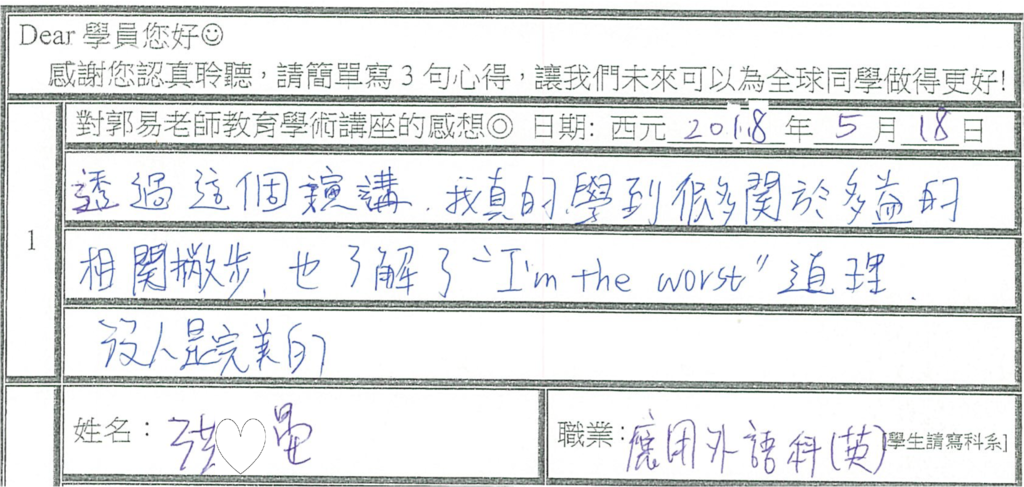 Dear 學員您好☺
感謝您認真聆聽，請簡單寫 3 句心得，讓我們未來可以為全球同學做得更好!
對郭易老師教育學術講座的感想◎ 日期: 西元 2018 年 5 月 18 日
1
透過這個演講，我真的學到很多関於多益的
相関撇步，也了解了“I'm the worst”道理．
沒人是完美的
姓名：
職業：應用外語科(英) [學生請寫科系]